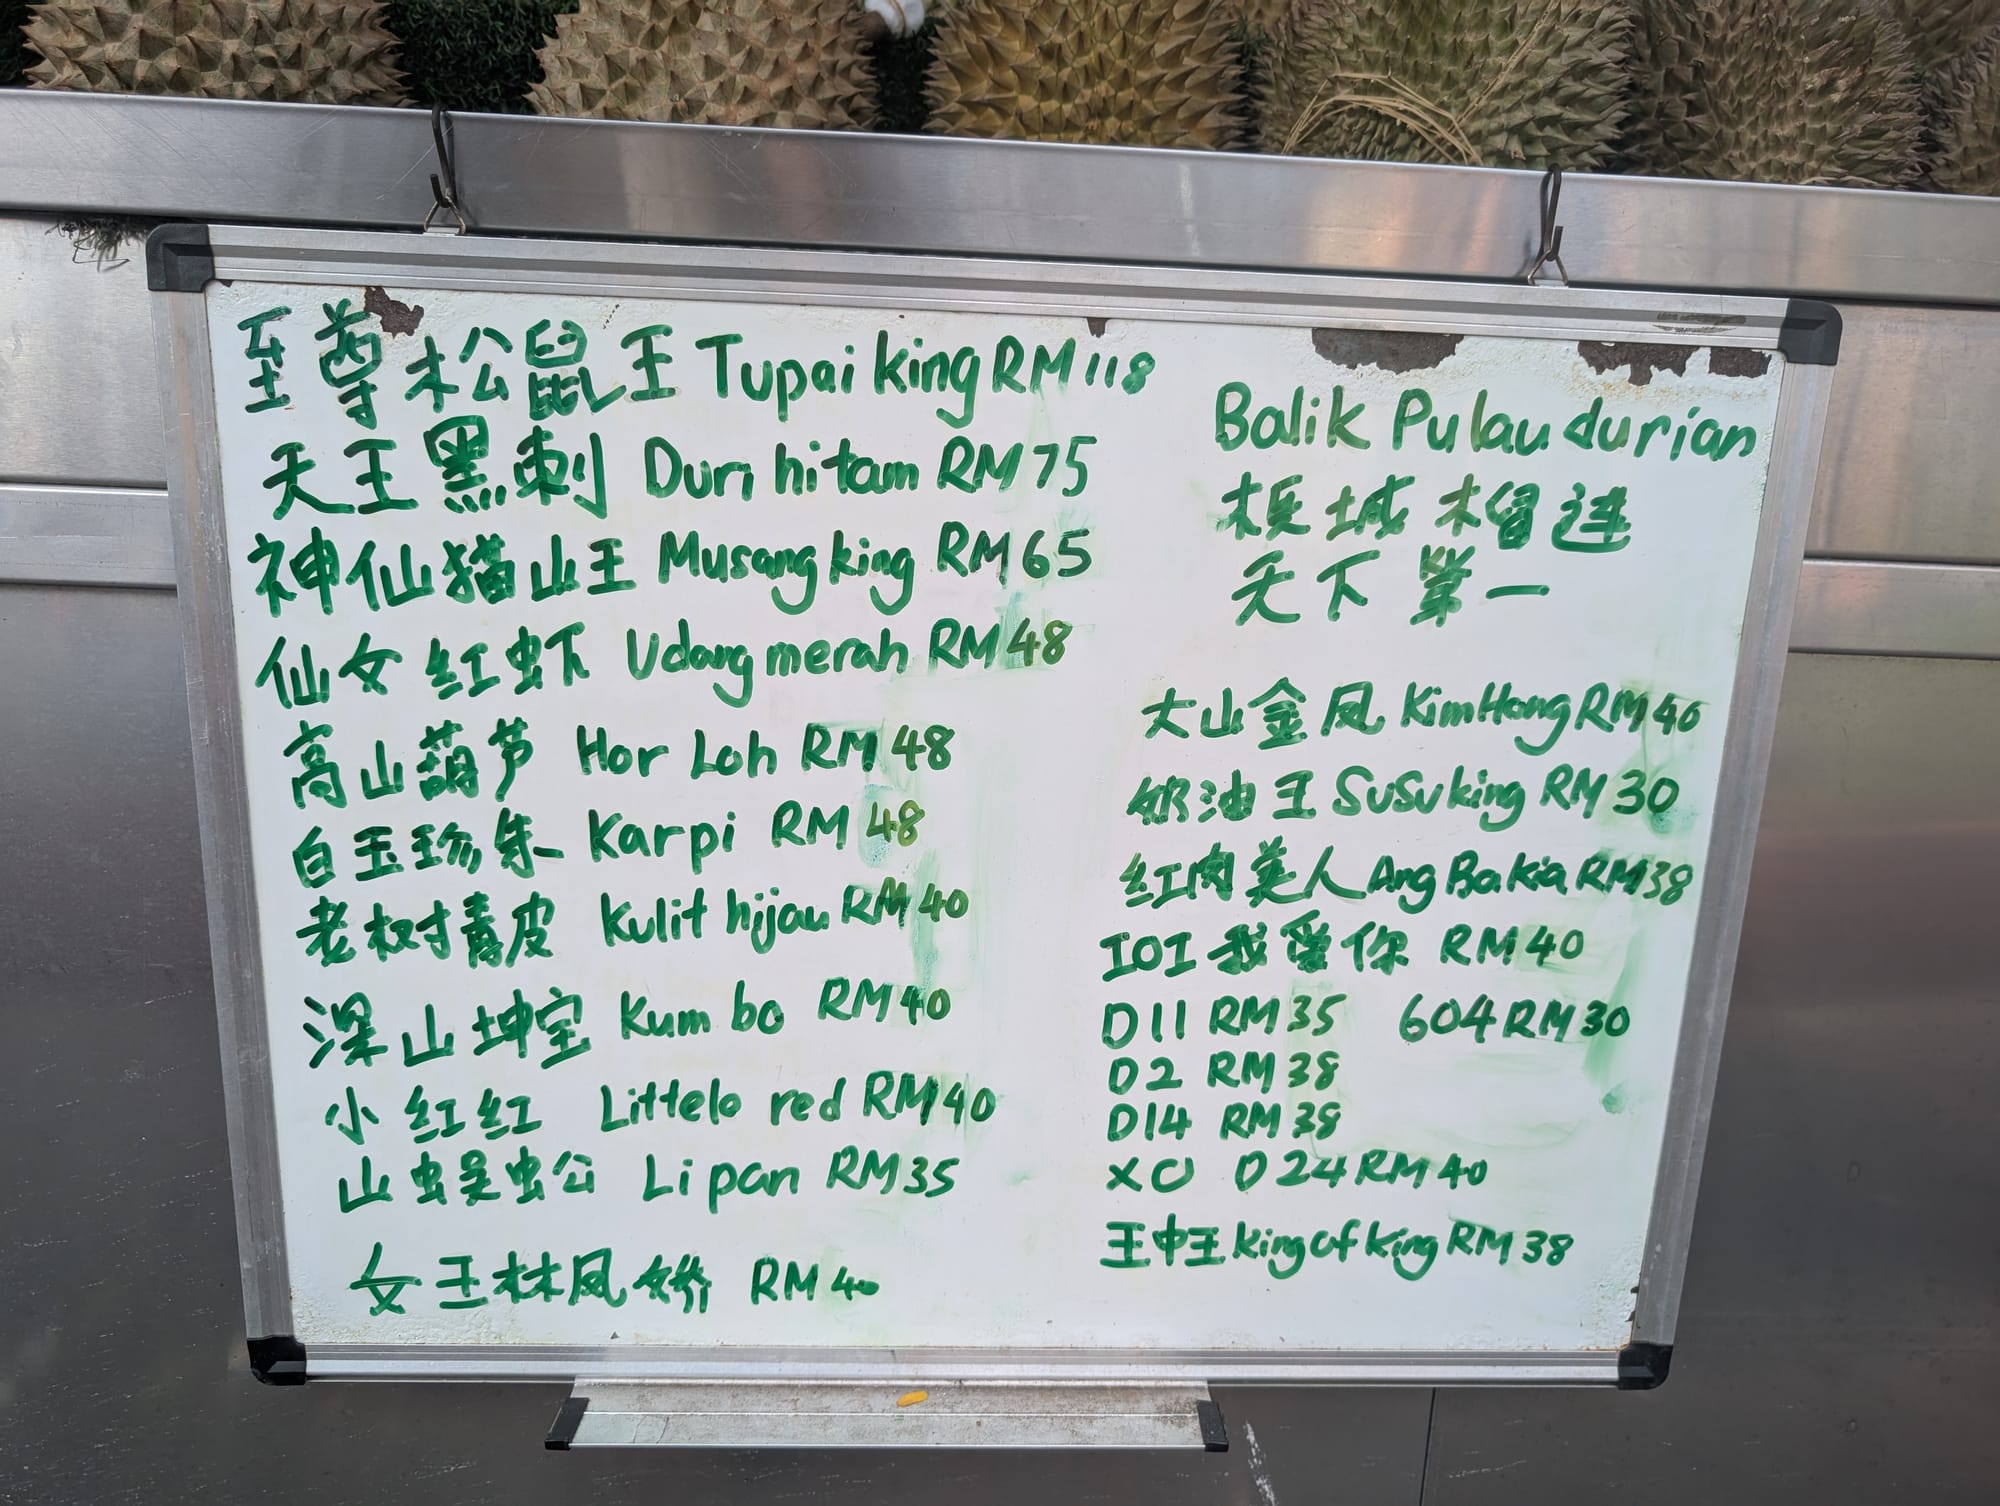 至尊松鼠王 Tupai king RM118
天王黑刺 Duri hitam RM75
神仙猫山王 Musang king RM65
仙女红虾 Udang merah RM48
高山葫芦 Hor Loh RM48
白玉珍朱 Karpi RM48
老树青皮 Kulit hijau RM40
深山坤宝 Kum bo RM40
小红红 Littele red RM40
山蜈蚣 Lipan RM35
女王林凤娇 RM40
Balik Pulau durian
槟城榴连
天下第一
大山金凤 Kim Hong RM40
奶油王 Susu king RM30
红肉美人 Ang Bakia RM38
IOI 我爱你 RM40
D11 RM35 604 RM30
D2 RM38
D14 RM38
XO D24 RM40
王中王 king of king RM38